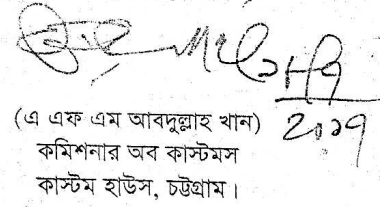 (এ এফ এম আবদুল্লাহ খান)
কমিশনার অব কাস্টমস
কাস্টম হাউস, চট্টগ্রাম।